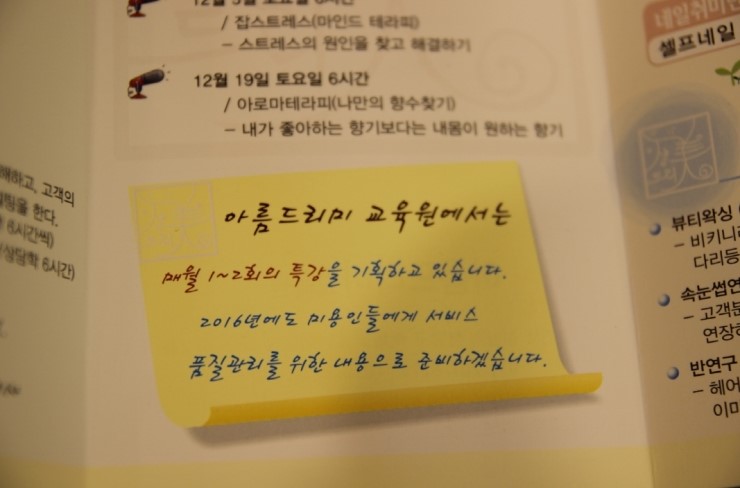 12월 5일 토요일 6시간
/ 잡스트레스(마인드 테라피)
– 스트레스의 원인을 찾고 해결하기
12월 19일 토요일 6시간
/ 아로마테라피(나만의 향수찾기)
– 내가 좋아하는 향기보다는 내몸이 원하는 향기
해하고, 고객의
팅을 한다.
6시간씩)
상담학 6시간)
아름드리미 교육원에서는
매월 1~2회의 특강을 기획하고 있습니다.
2016년에도 미용인들에게 서비스
품질관리를 위한 내용으로 준비하겠습니다.
네일취미
셀프네일
뷰티왁싱
– 비키니
다리등
속눈썹연
– 고객
연장하
반연구
– 헤어
이미